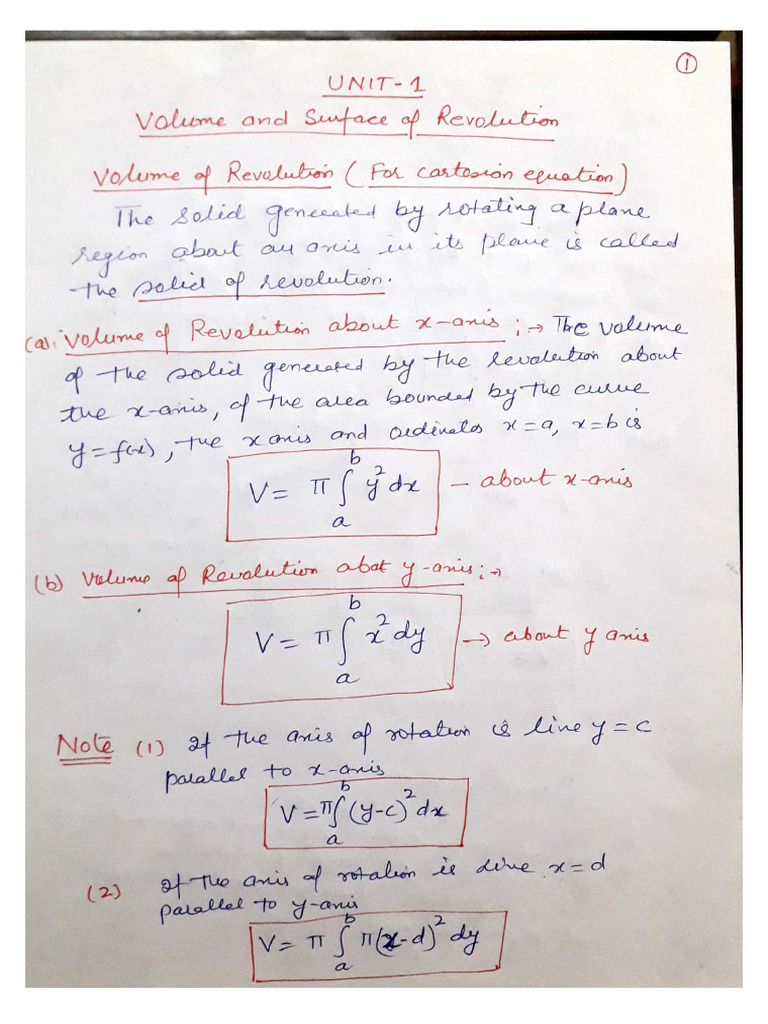 ①
UNIT-1
Volume and Surface of Revolution
Volume of Revolution (For cartesian equation)
The solid generated by rotating a plane
region about an axis in its plane is called
the solid of revolution.
(a): Volume of Revolution about x-axis ;→ The volume
of the solid generated by the revolution about
the x-axis, of the area bounded by the curve
y=f(x), the x axis and ordinates x=a, x=b is
V= π∫ₐᵇ y² dx — about x-axis
(b) Volume of Revolution abot y-axis;→
V= π∫ₐᵇ x² dy → about y axis
Note (1) If the axis of rotation is line y=c
parallel to x-axis
V=π∫ₐᵇ (y-c)² dx
(2) If the axis of rotation is line x=d
parallel to y-axis
V= π ∫ₐᵇ π(x-d)² dy